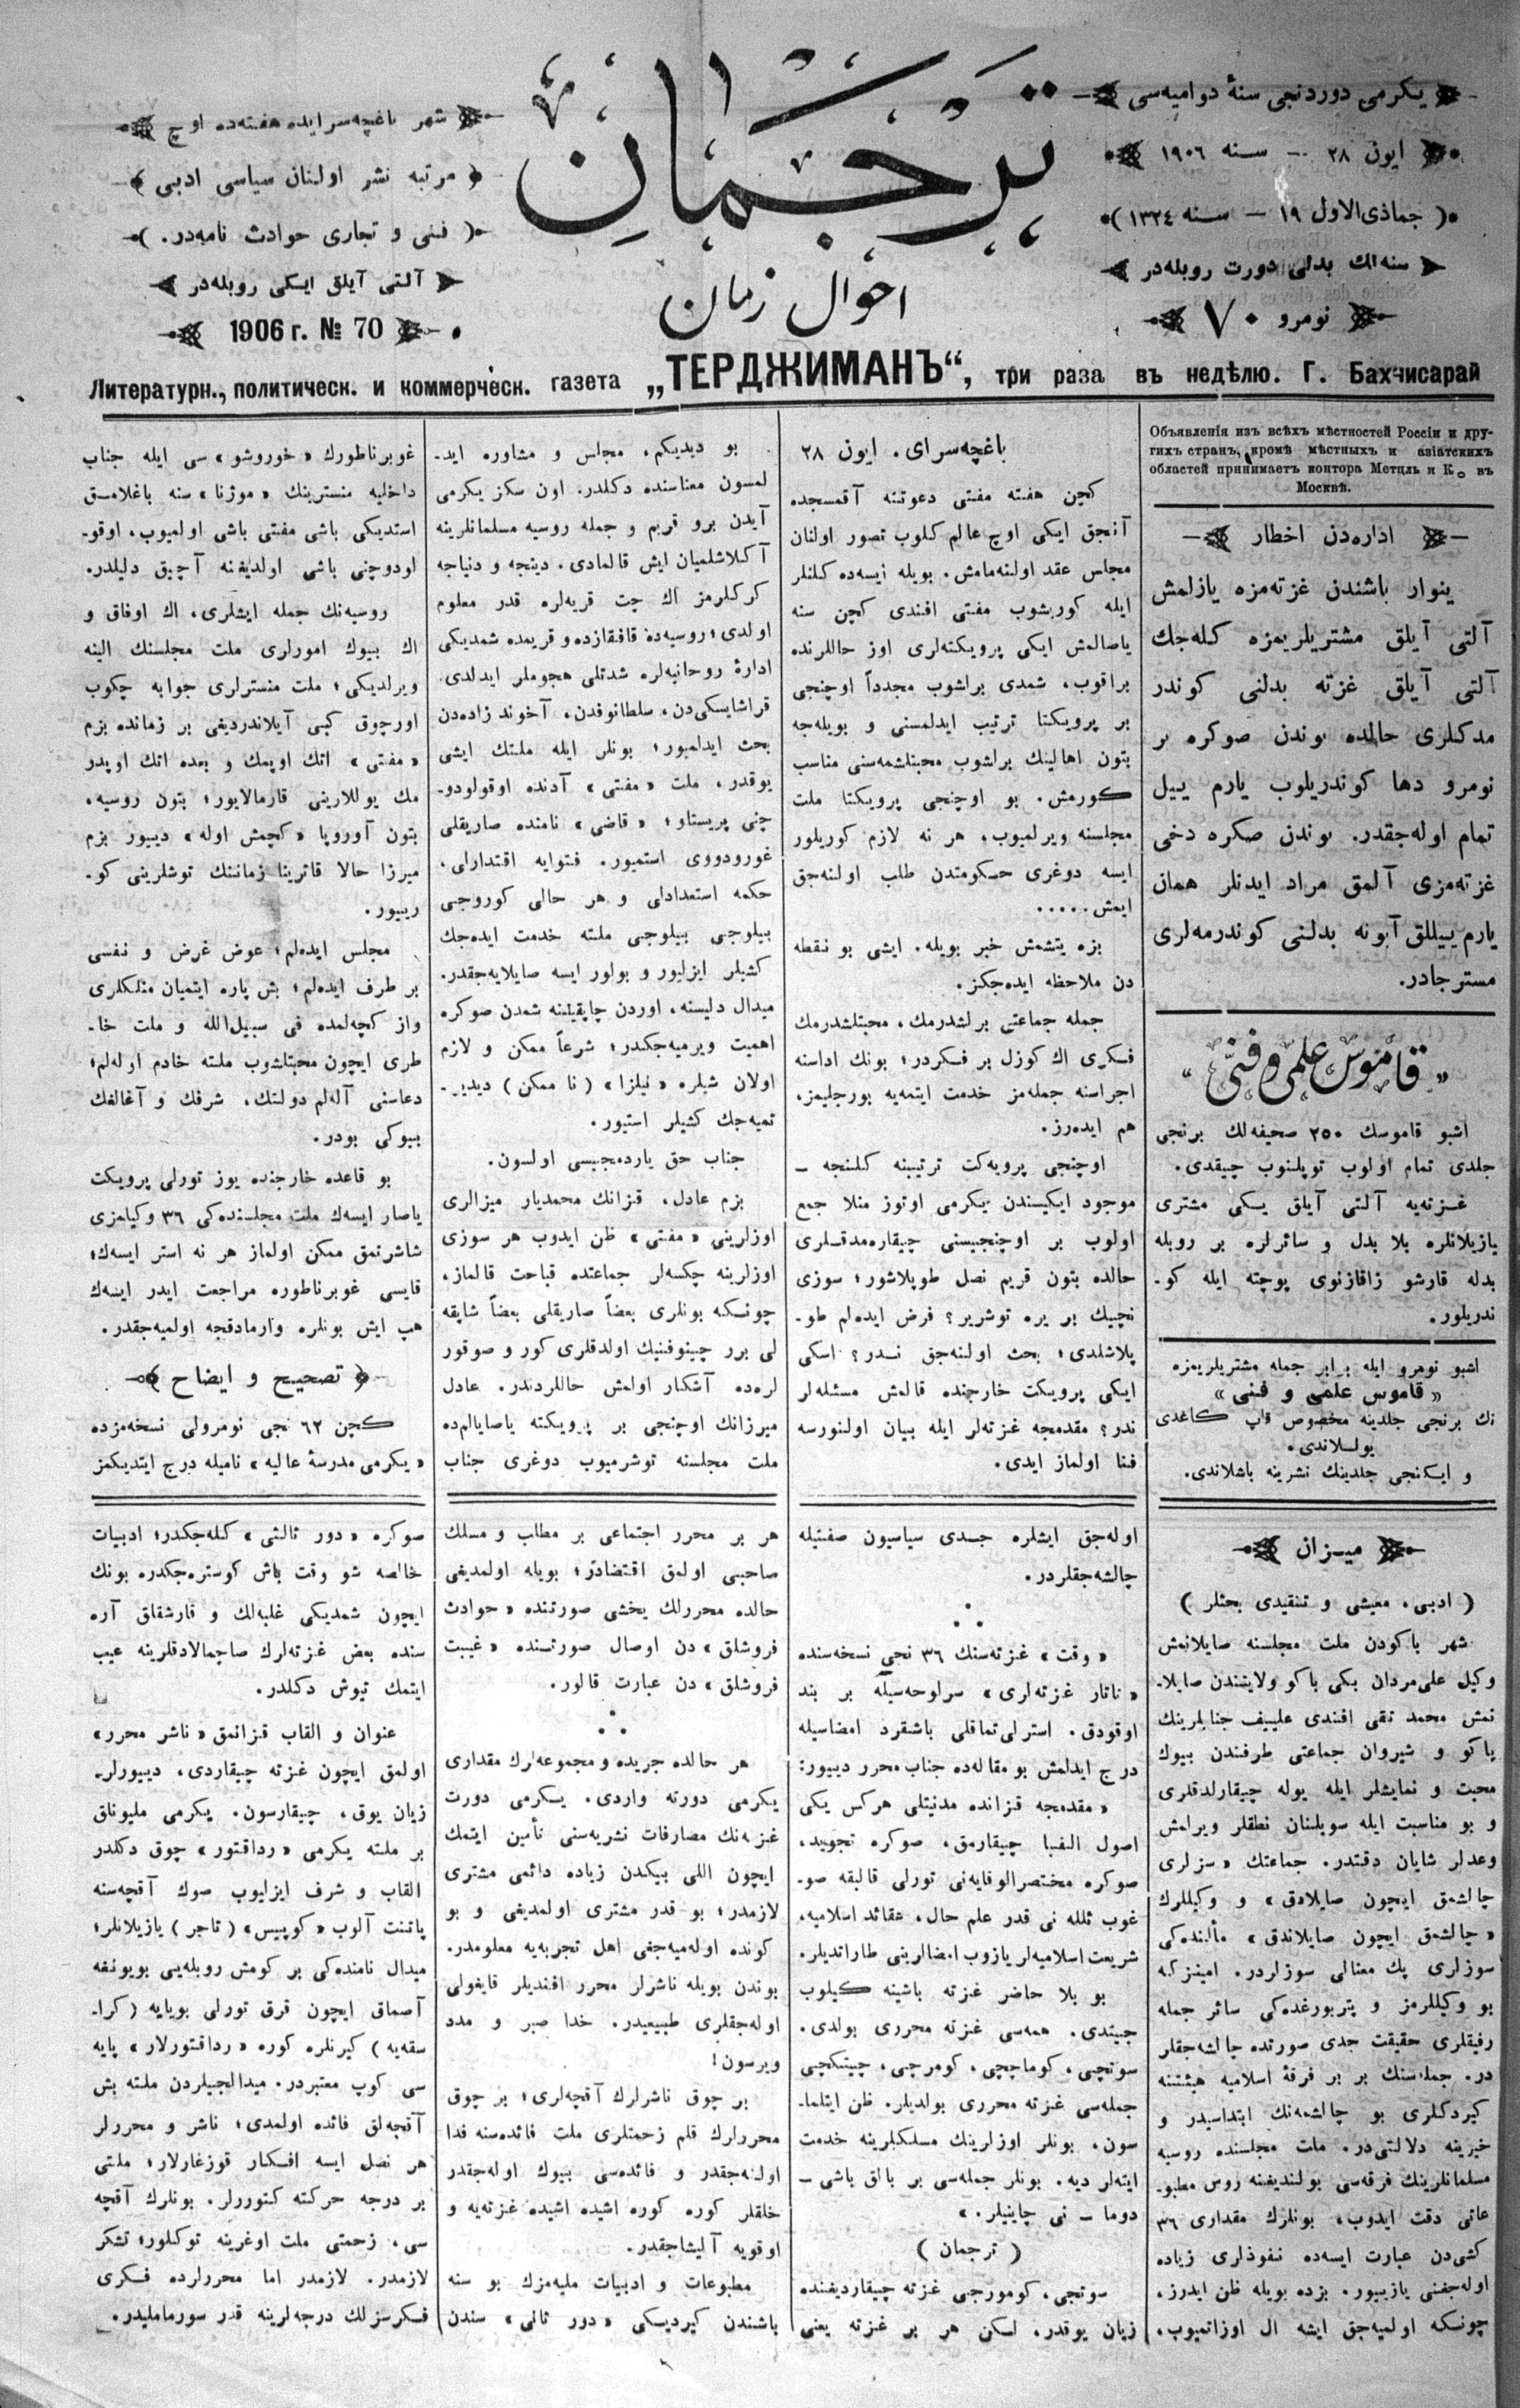 ترجمان
احوال زمان
يكرمی دوردنجی سنهٔ دوامیه‌سی
ایون ۲۸ — سنه ۱۹۰٦
( جماذی‌الاول ۱۹ — سنه ۱۳۲٤ )
سنه‌لك بدلی دورت روبله‌در
نومرو ۷۰
شهر باغچه‌سرایده هفته‌ده اوچ
مرتبه نشر اولنان سیاسی ادبی
فنی و تجاری حوادث نامه‌در.
آلتی آیلق ایكی روبله‌در
1906 г. № 70
Литературн., политическ. и коммерческ. газета „ТЕРДЖИМАНЪ“, три раза въ недѣлю. Г. Бахчисарай
Объявленія изъ всѣхъ мѣстностей Россіи и дру-
гихъ странъ, кромѣ мѣстныхъ и азіатскихъ
областей принимаетъ контора Метцль и Ко въ
Москвѣ.
اداره‌دن اخطار
ینوار باشندن غزته‌مزه یازلمش
آلتی آیلق مشتریلریمزه كله‌جك
آلتی آیلق غزته بدلنی كوندر
مدكلری حالده بوندن صوكره بر
نومرو دها كوندریلوب یارم ییل
تمام اوله‌جقدر. بوندن صكره دخی
غزته‌مزی آلمق مراد ایدنلر همان
یارم ییللق آبونه بدلنی كوندرمه‌لری
مسترجادر.
« قاموس علمی و فنی »
اشبو قاموسك ۲۵۰ صحیفه‌لك برنجی
جلدی تمام اولوب توپلنوب چیقدی.
غزته‌یه آلتی آیلق یسكی مشتری
یازیلانلره بلا بدل و سائرلره بر روبله
بدله قارشو زاقازنوی پوچته ایله كو-
ندریلور.
اشبو نومرو ایله برابر جمله مشتریلریمزه
« قاموس علمی و فنی »
نك برنجی جلدینه مخصوص قاپ كاغدی
یوللاندی.
و ایكنجی جلدینك نشرینه باشلاندی.
باغچه‌سرای. ایون ۲۸
كچن هفته مفتی دعوتنه آقمسجده
آنجق ایكی اوچ عالم كلوب تصور اولنان
مجلس عقد اولنه‌مامش. بویله ایسه‌ده كلنلر
ایله كوریشوب مفتی افندی كچن سنه
یاصالمش ایكی پرویكته‌لری اوز حاللرنده
براقوب، شمدی براشوب مجدداً اوچنجی
بر پرویكتا ترتیب ایدلمسنی و بویله‌جه
بتون اهالینك براشوب محبتلشمه‌سنی مناسب
كورمش. بو اوچنجی پرویكتا ملت
مجلسنه ویرلمیوب، هر نه لازم كوریلور
ایسه دوغری حكومتدن طلب اولنه‌جق
ایمش.....
بزه یتشمش خبر بویله. ایشی بو نقطه
دن ملاحظه ایده‌جكز.
جمله جماعتی برلشدرمك، محبتلشدرمك
فكری اك كوزل بر فكردر؛ بونك اداسنه
اجراسنه جمله‌مز خدمت ایتمه‌یه بورجلیمز،
هم ایده‌رز.
اوچنجی پرویه‌كت ترتیبینه كلنجه —
موجود ایكیسندن یكرمی اوتوز منلا جمع
اولوب بر اوچنجیسنی چیقاره‌مدقلری
حالده بتون قریم نصل طوپلاشور؛ سوزی
نچیك بر یره توشریر؟ فرض ایده‌لم طو-
پلاشلدی؛ بحث اولنه‌جق ندر؟ اسكی
ایكی پرویكت خارجنده قالمش مسئله‌لر
ندر؟ مقدمجه غزته‌لر ایله بیان اولنورسه
فنا اولماز ایدی.
بو دیدیكم، مجلس و مشاوره اید-
لمسون معناسنده دكلدر. اون سكز یكرمی
آیدن برو قریم و جمله روسیه مسلمانلرینه
آكلاشلمیان ایش قالمادی. دینجه و دنیاجه
كركلرمز اك چت قریه‌لره قدر معلوم
اولدی؛ روسیه‌ده قافقازده و قریمده شمدیكی
ادارهٔ روحانیه‌لره شدتلی هجوملر ایدلدی.
قراشایسكی‌دن، سلطانوفدن، آخوند زاده‌دن
بحث ایدلمیور؛ بونلر ایله ملتك ایشی
یوقدر، ملت « مفتی » آدنده اوقولودو-
چنی پریستاو؛ « قاضی » نامنده صاریقلی
غورودووی استمیور. فتوایه اقتدارلی،
حكمه استعدادلی و هر حالی كوروجی
بیلوجی بیلوجی ملته خدمت ایده‌جك
كشیلر ایزلیور و بولور ایسه صایلایه‌جقدر.
میدال دلیسنه، اوردن چاپقیلنه شمدن صوكره
اهمیت ویرمیه‌جكدر؛ شرعاً ممكن و لازم
اولان شیلره « نیلزا » ( نا ممكن ) دیدیر-
تمیه‌جك كشیلر استیور.
جناب حق یاردمجیسی اولسون.
بزم عادل، قزانك محمدیار میرزالری
اوزلرینی « مفتی » ظن ایدوب هر سوزی
اوزلرینه چكسه‌لر جماعتده قباحت قالماز.
چونكه بونلری بعضاً صاریقلی بعضاً شاپقه
لی برر چینوفنیك اولدقلری كور و صوقور
لره‌ده آشكار اولمش حاللردندر. عادل
میرزانك اوچنجی بر پرویكته یاصایالم‌ده
ملت مجلسنه توشرمیوب دوغری جناب
غوبرناطورك « خوروشو » سی ایله جناب
داخلیه منسترینك « موژنا » سنه باغلامق
استدیكی باشی مفتی باشی اولمیوب، اوقو-
لودوچنی باشی اولدیغنه آچیق دلیلدر.
روسیه‌نك جمله ایشلری، اك اوفاق و
اك بیوك امورلری ملت مجلسنك الینه
ویرلدیكی؛ ملت منسترلری جوابه چكوب
اورچوق كبی آیلاندردیغی بر زمانده بزم
« مفتی » اتك اوپمك و بعده اتك اوپدر
مك یوللارینی قارمالایور؛ بتون روسیه،
بتون آوروپا « كچمش اوله » دییور بزم
میرزا حالا قاترینا زماننك توشلرینی كو-
ریبور.
مجلس ایده‌لم؛ عوض غرض و نفسی
بر طرف ایده‌لم؛ بش پاره ایتمیان منلكلری
واز كچه‌لمده فی سبیل‌الله و ملت خا-
طری ایچون محبتلشوب ملته خادم اوله‌لم؛
دعاسنی آله‌لم دولتك، شرفك و آغالغك
بیوكی بودر.
بو قاعده خارجنده یوز تورلی پرویكت
یاصار ایسه‌ك ملت مجلسنده‌كی ۳٦ وكیلمزی
شاشرتمق ممكن اولماز هر نه استر ایسه‌ك؛
قایسی غوبرناطوره مراجعت ایدر ایسه‌ك
هپ ایش بونلره وارمادقجه اولمیه‌جقدر.
تصحیح و ایضاح
كچن ٦۲ نجی نومرولی نسخه‌مزده
« یكرمی مدرسهٔ عالیه » نامیله درج ایتدیكمز
میزان
( ادبی، معیشی و تنقیدی بحثلر )
شهر باكودن ملت مجلسنه صایلانمش
وكیل علی‌مردان بكی باكو ولایتندن صایلا-
نمش محمد تقی افندی علییف جنابلرینك
باكو و شیروان جماعتی طرفندن بیوك
محبت و نمایشلر ایله یوله چیقارلدقلری
و بو مناسبت ایله سویلنان نطقلر ویرلمش
وعدلر شایان دقتدر. جماعتك « سزلری
چالشمق ایچون صایلادق » و وكیللرك
« چالشمق ایچون صایلاندق » مألنده‌كی
سوزلری پك معنالی سوزلردر. امینزكه
بو وكیللرمز و پتربورغده‌كی سائر جمله
رفیقلری حقیقت جدی صورتده چالشه‌جقلر
در. جمله‌سنك بر بر فرقهٔ اسلامیه هیئتنه
كیردكلری بو چالشمه‌نك ابتداسیدر و
خیرینه دلالتی‌در. ملت مجلسنده روسیه
مسلمانلرینك فرقه‌سی بولندیغنه روس مطبو-
عاتی دقت ایدوب، بونلرك مقداری ۳٦
كشی‌دن عبارت ایسه‌ده نفوذلری زیاده
اوله‌جغنی یازییور. بزده بویله ظن ایدرز،
چونكه اولمیه‌جق ایشه ال اوزاتمیوب،
اوله‌جق ایشلره جدی سیاسیون صفتیله
چالشه‌جقلردر.
« وقت » غزته‌سنك ۳٦ نجی نسخه‌سنده
« تاتار غزته‌لری » سرلوحه‌سیله بر بند
اوقودق. استرلی‌تماقلی باشقرد امضاسیله
درج ایدلمش بو مقاله‌ده جناب محرر دییور:
« مقدمجه قزانده مدنیتلی هركس یكی
اصول الفبا چیقارمق، صوكره تجوید،
صوكره مختصرالوقایه‌نی تورلی قالبقه صو-
غوب ئلله نی قدر علم حال، عقائد اسلامیه،
شریعت اسلامیه‌لر یازوب امضالرینی طاراتدیلر.
بو بلا حاضر غزته باشینه كیلوب
جیتدی. همه‌سی غزته محرری بولدی.
سوتچی، كوماچچی، كومرچی، چیتكچی
جمله‌سی غزته محرری بولدیلر. ظن ایتلما-
سون، بونلر اوزلرینك مسلكلرینه خدمت
ایته‌لر دیه. بونلر جمله‌سی بر بالق باشی —
دوما — نی چاینیلر. »
( ترجمان )
سوتجی، كومورجی غزته چیقاردیغنده
زیان یوقدر، لكن هر بر غزته یعنی
هر بر محرر اجتماعی بر مطلب و مسلك
صاحبی اولمق اقتضادر؛ بویله اولمدیغی
حالده محررلك یخشی صورتنده « حوادث
فروشلق » دن اوصال صورتنده « غیبت
فروشلق » دن عبارت قالور.
هر حالده جریده و مجموعه‌لرك مقداری
یكرمی دورته واردی. یكرمی دورت
غزته‌نك مصارفات نشریه‌سنی تأمین ایتمك
ایچون اللی بیكدن زیاده دائمی مشتری
لازمدر؛ بو قدر مشتری اولمدیغی و بو
كونده اوله‌میه‌جغی اهل تجربه‌یه معلومدر.
بوندن بویله ناشرلر محرر افندیلر قایغولی
اوله‌جقلری طبیعیدر. خدا صبر و مدد
ویرسون!
بر چوق ناشرلرك آقچه‌لری؛ بر چوق
محررلرك قلم زحمتلری ملت فائده‌سنه فدا
اولنه‌جقدر و فائده‌سی بیوك اوله‌جقدر
خلقلر كوره كوره اشیده اشیده غزته‌یه و
اوقویه آلیشاجقدر.
مطبوعات و ادبیات ملیه‌مزك بو سنه
باشندن كیردیكی « دور ثانی » سندن
صوكره « دور ثالثی » كله‌جكدر؛ ادبیات
خالصه شو وقت باش كوستره‌جكدره بونك
ایچون شمدیكی غلبه‌لك و قارشقلق آره
سنده بعض غزته‌لرك صاچمالادقلرینه عیب
ایتمك تیوش دكلدر.
عنوان و القاب قزانمق « ناشر محرر »
اولمق ایچون غزته چیقاردی، دییورلر-
زیان یوق، چیقارسون. یكرمی ملیونلق
بر ملته یكرمی « رداقتور » چوق دكلدر
القاب و شرف ایزلیوب صوك آقچه‌سنه
پاتنت آلوب « كوپیس » ( تاجر ) یازیلانلر؛
میدال نامنده‌كی بر كومش روبله‌یی بویونغه
آصماق ایچون قرق تورلی بویایه ( كرا-
سقه‌یه ) كیرنلره كوره « رداقتورلار » پایه
سی كوپ معتبردر. میدالجیلردن ملته بش
آقچه‌لق فائده اولمدی؛ ناشر و محررلر
هر نصل ایسه افكار قوزغارلار؛ ملتی
بر درجه حركته كتوررلر. بونلرك آقچه
سی، زحمتی ملت اوغرینه توكلور؛ تشكر
لازمدر. لازمدر اما محررلرده فكری
فكرسزلك درجه‌لرینه قدر سورماملیدر.